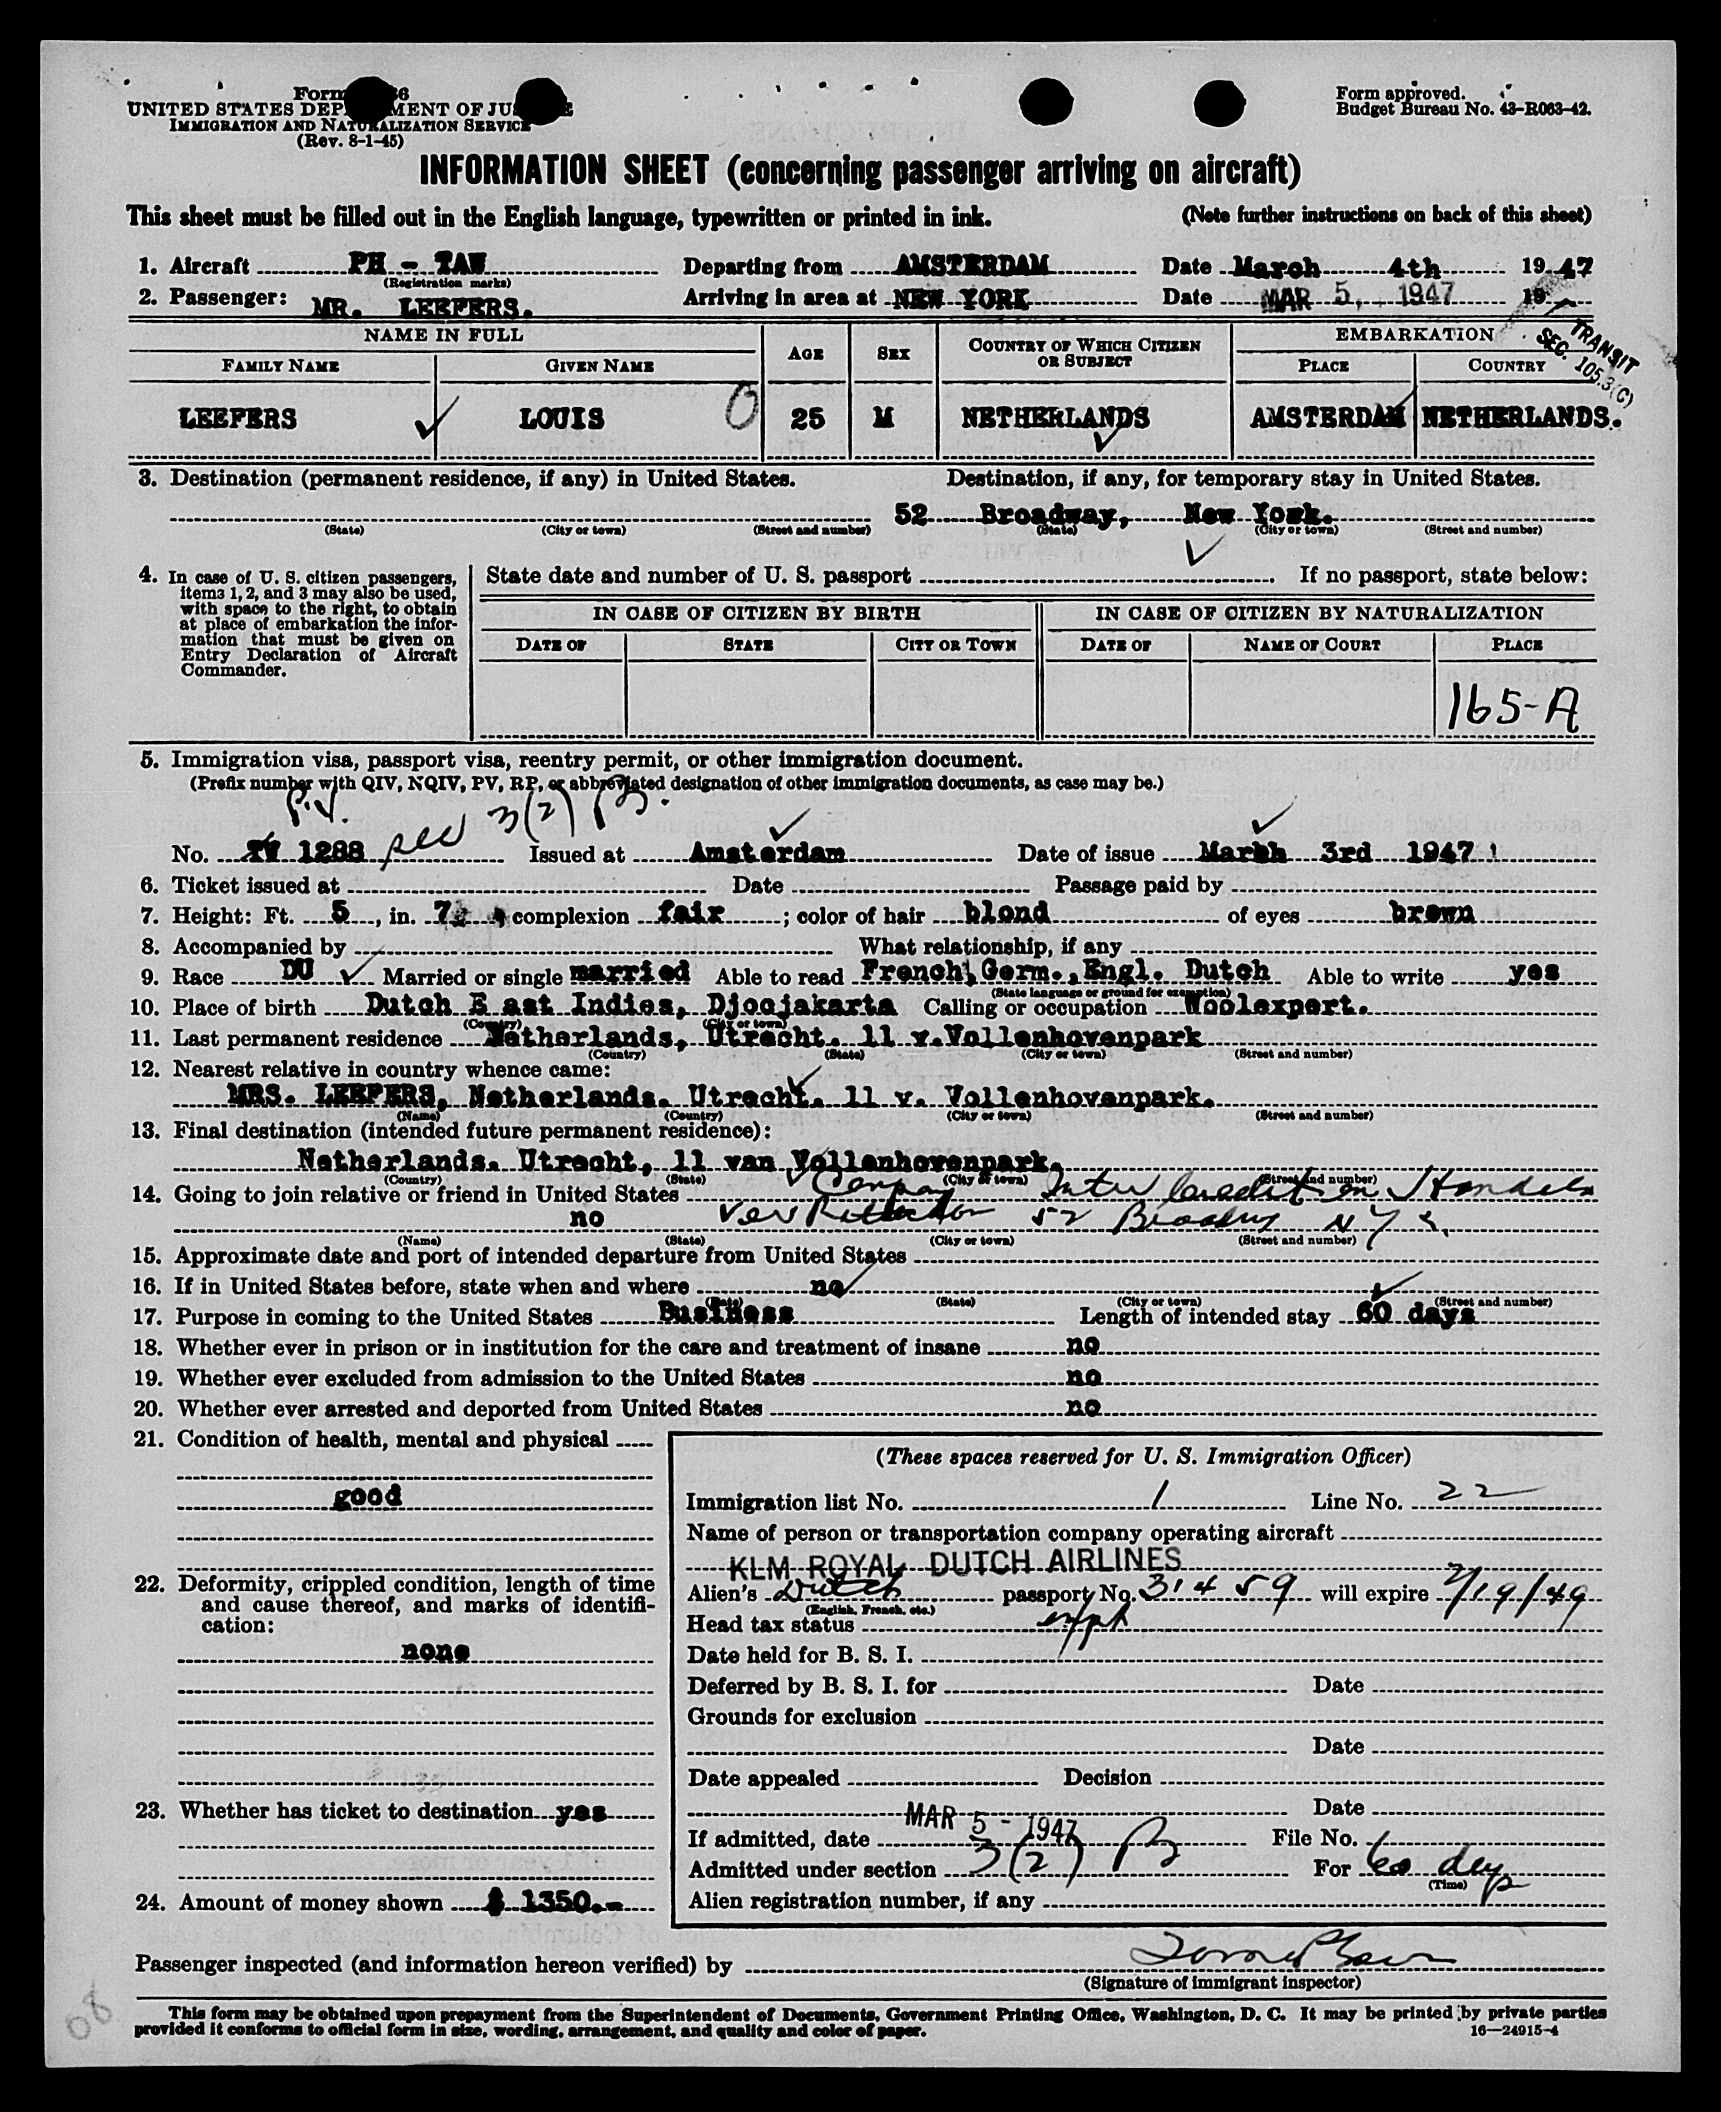 Form 66
UNITED STATES DEP MENT OF JUS E
IMMIGRATION AND NATURALIZATION SERVICE
(Rev. 8-1-45)
Form approved.
Budget Bureau No. 43-R063-42.
INFORMATION SHEET (concerning passenger arriving on aircraft)
This sheet must be filled out in the English language, typewritten or printed in ink. (Note further instructions on back of this sheet)
1. Aircraft PH - TAW Departing from AMSTERDAM Date March 4th 1947
(Registration marks)
2. Passenger: MR. LEEFERS. Arriving in area at NEW YORK Date MAR 5, 1947 19
TRANSIT
SEC. 105.3(C)
NAME IN FULL AGE SEX COUNTRY OF WHICH CITIZEN OR SUBJECT EMBARKATION
FAMILY NAME GIVEN NAME PLACE COUNTRY
LEEFERS LOUIS 25 M NETHERLANDS AMSTERDAM NETHERLANDS.
3. Destination (permanent residence, if any) in United States. Destination, if any, for temporary stay in United States.
52 Broadway, New York.
(State) (City or town) (Street and number) (State) (City or town) (Street and number)
4. In case of U. S. citizen passengers, items 1, 2, and 3 may also be used, with space to the right, to obtain at place of embarkation the information that must be given on Entry Declaration of Aircraft Commander.
State date and number of U. S. passport . If no passport, state below:
IN CASE OF CITIZEN BY BIRTH IN CASE OF CITIZEN BY NATURALIZATION
DATE OF STATE CITY OR TOWN DATE OF NAME OF COURT PLACE
165-A
5. Immigration visa, passport visa, reentry permit, or other immigration document.
(Prefix number with QIV, NQIV, PV, RP, or abbreviated designation of other immigration documents, as case may be.)
P.V. sec 3(2) B.
No. 1288 Issued at Amsterdam Date of issue March 3rd 1947
6. Ticket issued at Date Passage paid by
7. Height: Ft. 5, in. 7, complexion fair; color of hair blond of eyes brown
8. Accompanied by What relationship, if any
9. Race DU Married or single married Able to read French, Germ., Engl. Dutch Able to write yes
(State language or ground for exemption)
10. Place of birth Dutch East Indies, Djocjakarta Calling or occupation Woolexpert.
(Country) (City or town)
11. Last permanent residence Netherlands, Utrecht. 11 v.Vollenhovenpark
(Country) (State) (City or town) (Street and number)
12. Nearest relative in country whence came:
MRS. LEEFERS, Netherlands. Utrecht. 11 v. Vollenhovenpark.
(Name) (Country) (City or town) (Street and number)
13. Final destination (intended future permanent residence):
Netherlands. Utrecht, 11 van Vollenhovenpark.
(Country) (State) (City or town) (Street and number)
14. Going to join relative or friend in United States Company Inter
no 52 Broadway N Y C.
(Name) (State) (City or town) (Street and number)
15. Approximate date and port of intended departure from United States
16. If in United States before, state when and where no
(Date) (State) (City or town) (Street and number)
17. Purpose in coming to the United States Business Length of intended stay 60 days
18. Whether ever in prison or in institution for the care and treatment of insane no
19. Whether ever excluded from admission to the United States no
20. Whether ever arrested and deported from United States no
21. Condition of health, mental and physical
good
22. Deformity, crippled condition, length of time and cause thereof, and marks of identification:
none
23. Whether has ticket to destination yes
24. Amount of money shown $ 1350.-
(These spaces reserved for U. S. Immigration Officer)
Immigration list No. 1 Line No. 22
Name of person or transportation company operating aircraft
KLM ROYAL DUTCH AIRLINES
Alien's Dutch passport No. 31459 will expire 2/19/49
(English, French, etc.)
Head tax status
Date held for B. S. I.
Deferred by B. S. I. for Date
Grounds for exclusion
Date
Date appealed Decision
Date
If admitted, date MAR 5 - 1947 File No.
Admitted under section 3(2) B For 60 days
(Time)
Alien registration number, if any
Passenger inspected (and information hereon verified) by
(Signature of immigrant inspector)
This form may be obtained upon prepayment from the Superintendent of Documents, Government Printing Office, Washington, D. C. It may be printed by private parties
provided it conforms to official form in size, wording, arrangement, and quality and color of paper.
16—24915-4